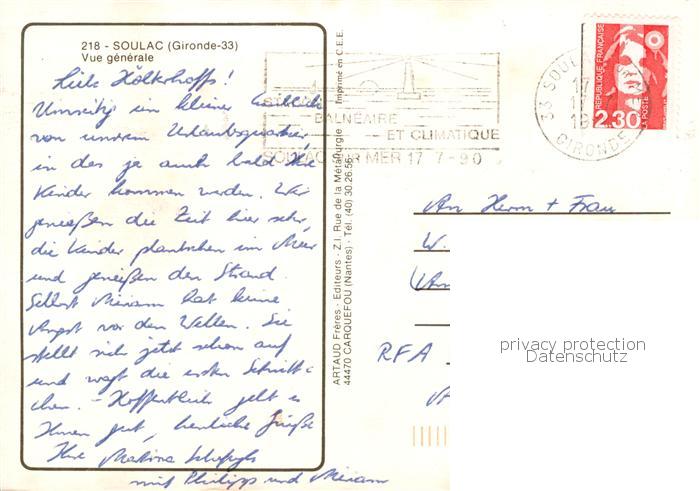 218 - SOULAC (Gironde-33)
Vue générale
Liebe Hölkerhoffs!
Umseitig ein kleiner
von unserem Urlaubsquartier,
in das ja auch bald Ihre
Kinder kommen werden. Wir
genießen die Zeit hier sehr,
die Kinder plantschen im Meer
und genießen den Strand.
Selbst Miriam hat keine
Angst vor den Wellen. Sie
stellt sich jetzt schon auf
und wagt die ersten Schritt-
chen. - Hoffentlich geht es
Ihnen gut, herzliche Grüße
Ihre Martina
mit Philipp und Miriam
ARTAUD Frères - Editeurs - Z.I. Rue de la Métallurgie
44470 CARQUEFOU (Nantes) - Tél. (40) 30.26.56
Imprimé en C.E.E.
BALNÉAIRE
ET CLIMATIQUE
SOULAC SUR MER 17 7-90
33 SOULAC
17
GIRONDE
REPUBLIQUE FRANÇAISE
LA POSTE
2,30
An Herrn + Frau
W.
RFA
privacy protection
Datenschutz